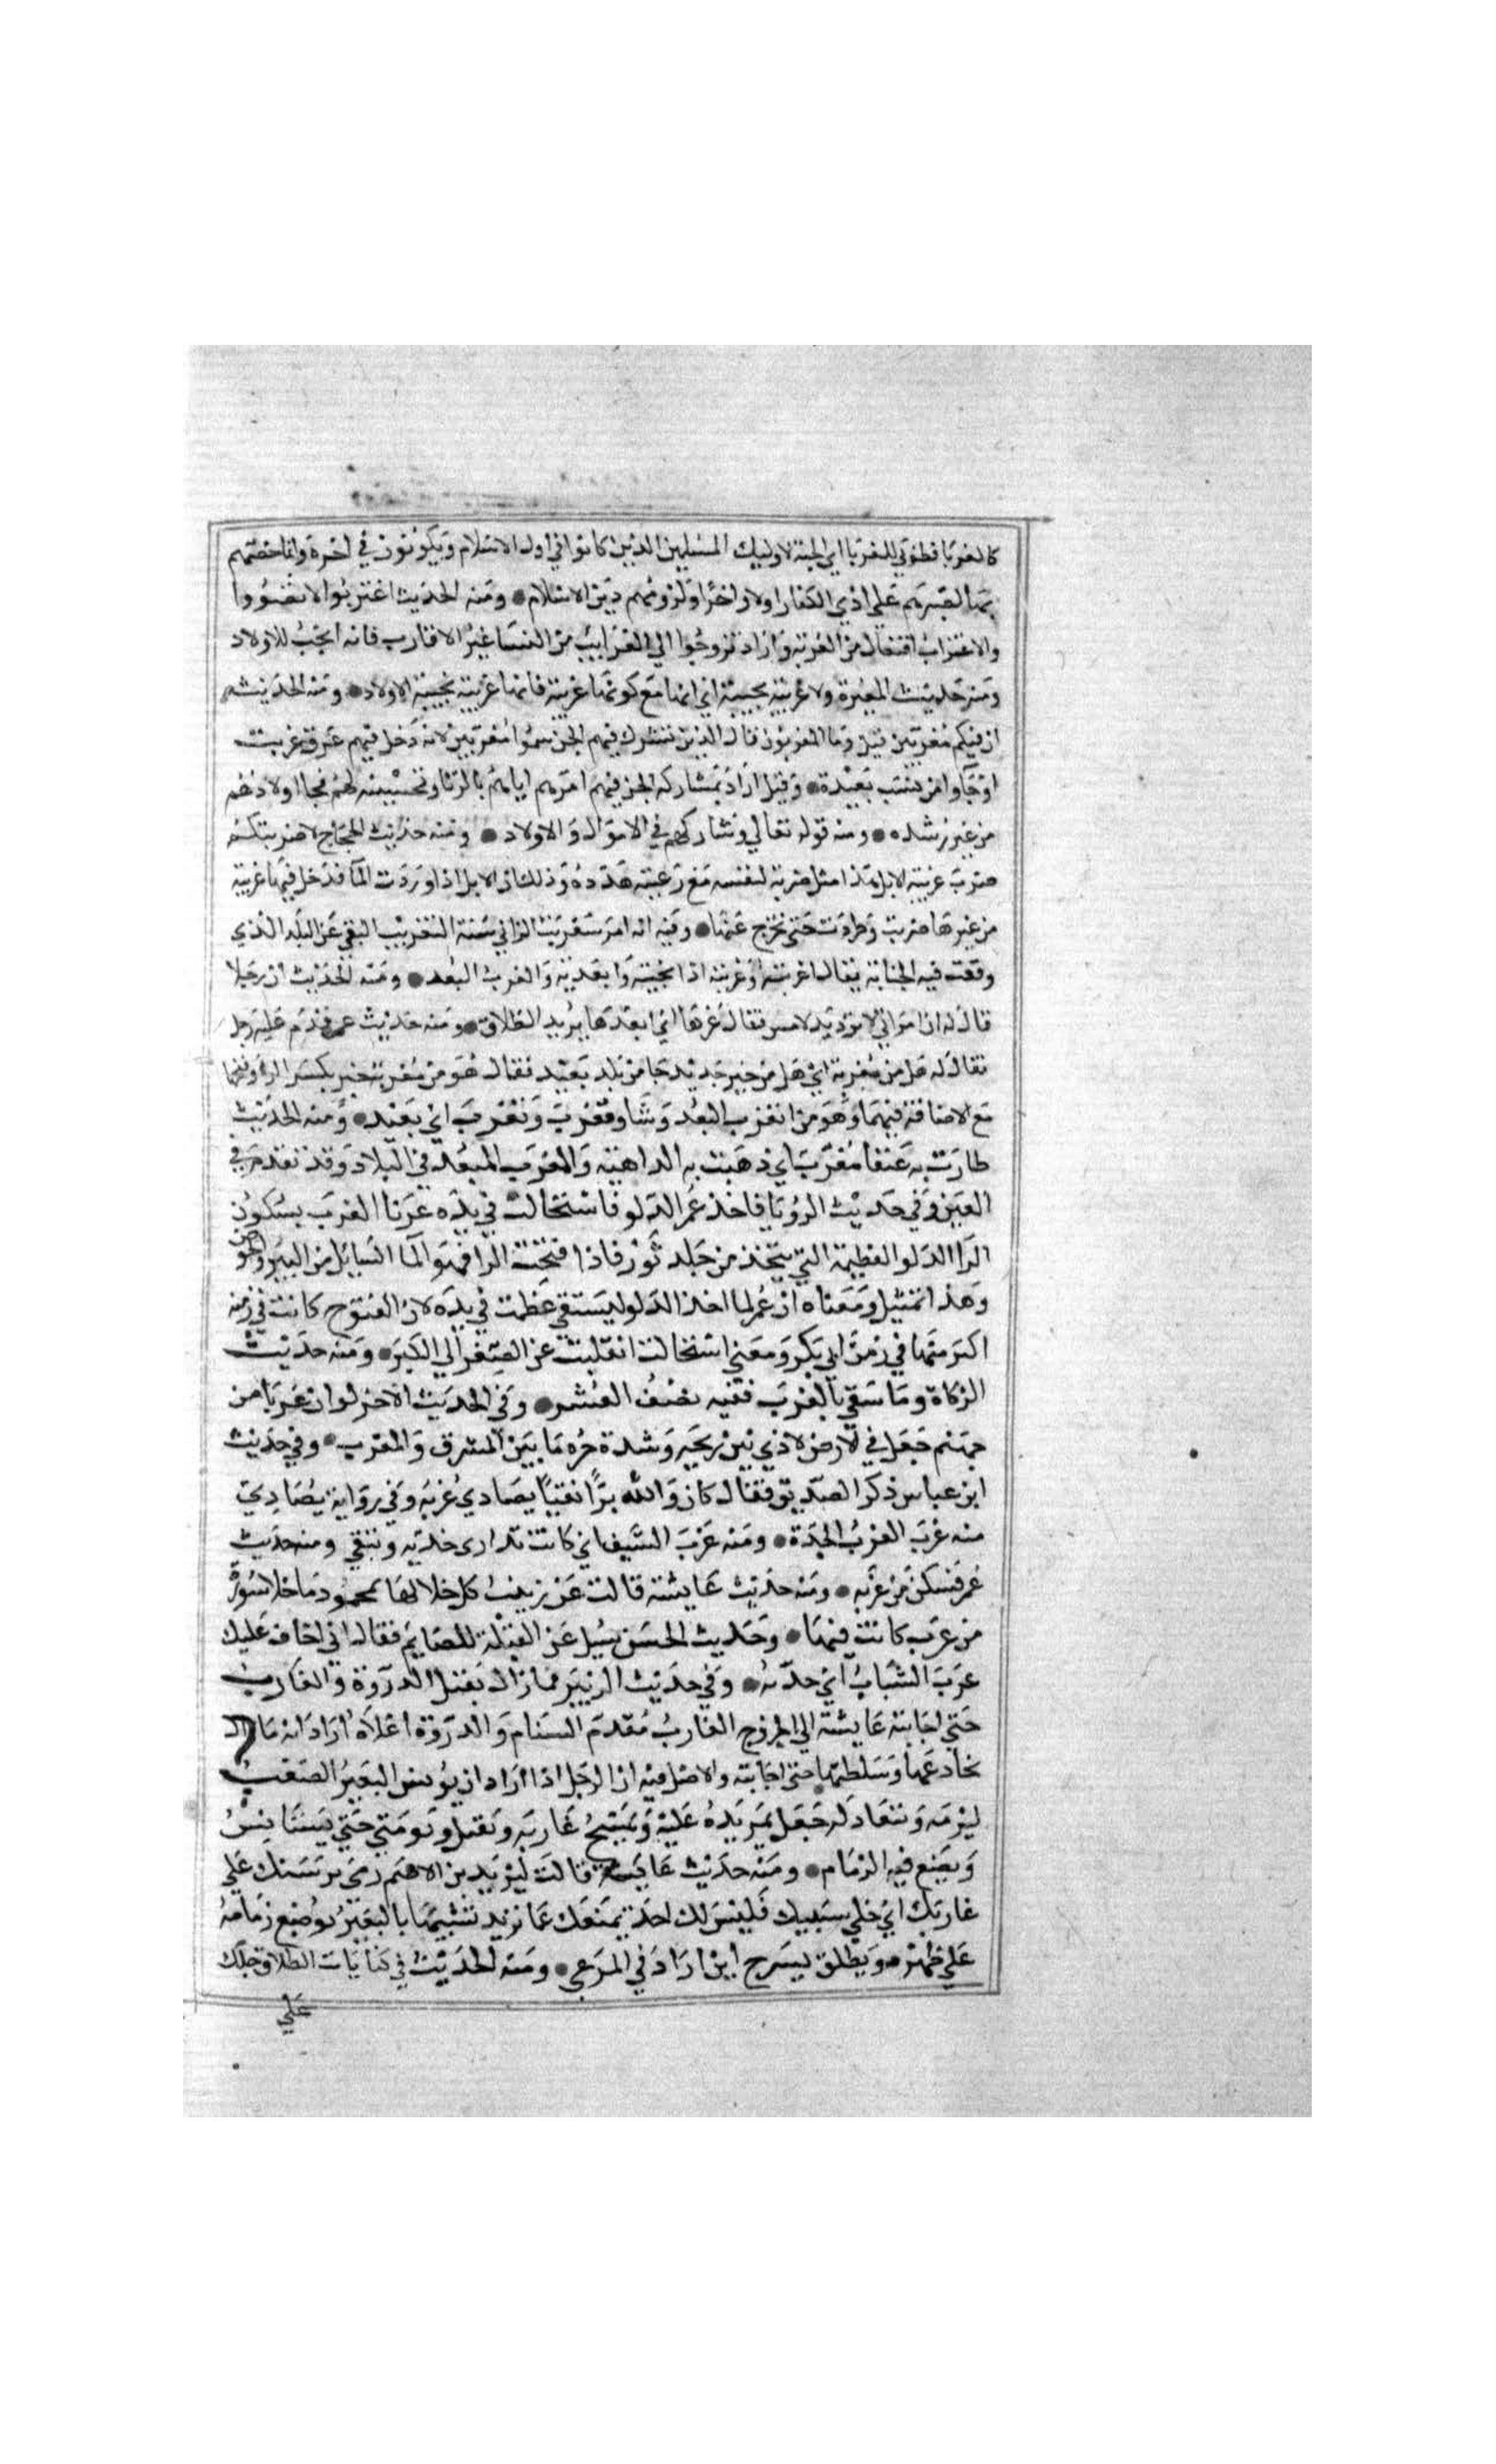 كالغربا فطوبي للغربا اي الجنة لاوليك المسلمين الذين كانوا في اول الاسلام ويكونون في اخره وانما خصهم
بها لصبرهم علي اذي الكفار اولا واخرا ولزومهم دين الاسلام ومنه الحديث اغتربوا لا تضووا
والاغتراب افتعال من الغربة واراد تزوجوا الي الغرايب من النسا غير الاقارب فانه انجب للاولاد
ومنه حديث المغيرة ولا غريبة نجيبة اي انها مع كونها غريبة فانها غريبة نجيبة الاولاد ومنه الحديث
ان فيكم مغربين قيل وما المغربون قال الذين تشترك فيهم الجن سموا مغربين لانه دخل فيهم عرق غريب
او جاوا من نسب بعيدة وقيل اراد بمشاركة الجن فيهم امرهم اياهم بالزنا وتحسينه لهم فجا اولادهم
من غير رشده ومنه قوله تعالي وشاركهم في الاموال والاولاد ومنه حديث الحجاج لاضربنكم
ضرب غريبة الابل هذا مثل ضربه لنفسه مع رعيته هددهم وذلك ان الابل اذا وردت الما فدخل فيها غريبة
من غيرها ضربت وطردت حتي تخرج عنها وفيه انه امر بتغريب الزاني سنة التغريب النفي عن البلد الذي
وقعت فيه الجناية يقال اغربته وغربته اذا نحيته وابعدته والغرب البعد ومنه الحديث ان رجلا
قال له ان امراتي لا ترد يد لامس فقال غربها اي ابعدها يريد الطلاق ومنه حديث عمر قدم عليه رجل
فقال له هل من مغربة اي هل من خبر جديد جا من بلد بعيد فقال هو من مغربة خبر بكسر الرا وفتحها
مع الاضافة فيهما وهو من الغرب البعد وشاو مغرب ومغرب اي بعيد ومنه الحديث
طارت به عنقا مغرب اي ذهبت به الداهية والمغرب المبعد في البلاد وقد تقدم في
العين وفي حديث الرويا فاخذ عمر الدلو فاستحالت في يده غربا الغرب بسكون
الرا الدلو العظيمة التي تتخذ من جلد ثور فاذا فتحت الرا فهو الما السايل من البير والحوض
وهذا تمثيل ومعناه ان عمر لما اخذ الدلو ليستقي عظمت في يده لان الفتوح كانت في زمنه
اكثر منها في زمن ابي بكر ومعني استحالت انقلبت عن الصغر الي الكبر ومنه حديث
الزكاة وما سقي بالغرب ففيه نصف العشر وفي الحديث الاخر لو ان غربا من
جهنم جعل في الارض لاذي نتن ريحه وشدة حره ما بين المشرق والمغرب وفي حديث
ابن عباس ذكر الصديق فقال كان والله برا تقيا يصادي غربه وفي رواية يصادي
منه غرب الغرب الحدة ومنه غرب السيف اي كانت تداري حدته وتتقي ومنه حديث
عمر فسكن من غربه ومنه حديث عايشة قالت عن زينب كل خلالها محمود ما خلا سورة
من غرب كانت فيها وحديث الحسن سيل عن القبلة للصايم فقال اني اخاف عليك
غرب الشباب اي حدته وفي حديث الزبير فما زال يفتل الدروة والغارب
حتي اجابته عايشة الي الخروج الغارب مقدم السنام والدروة اعلاه اراد انه ما زال
يخادعها حتي اجابته والاصل فيه ان الرجل اذا اراد ان يونس البعير الصعب
ليزمه وينقاد له جعل يمر يده عليه ويمسح غاربه ويفتل وبره حتي يستانس
ويضع فيه الزمام ومنه حديث عايشة قالت ليزيد بن الاصم رمي برسنك علي
غاربك اي خلي سبيلك فليس لك احد يمنعك عما تريد تشبيها بالبعير يوضع زمامه
علي ظهره ويطلق يسرح اين اراد في المرعي ومنه الحديث في كنايات الطلاق حبلك
علي